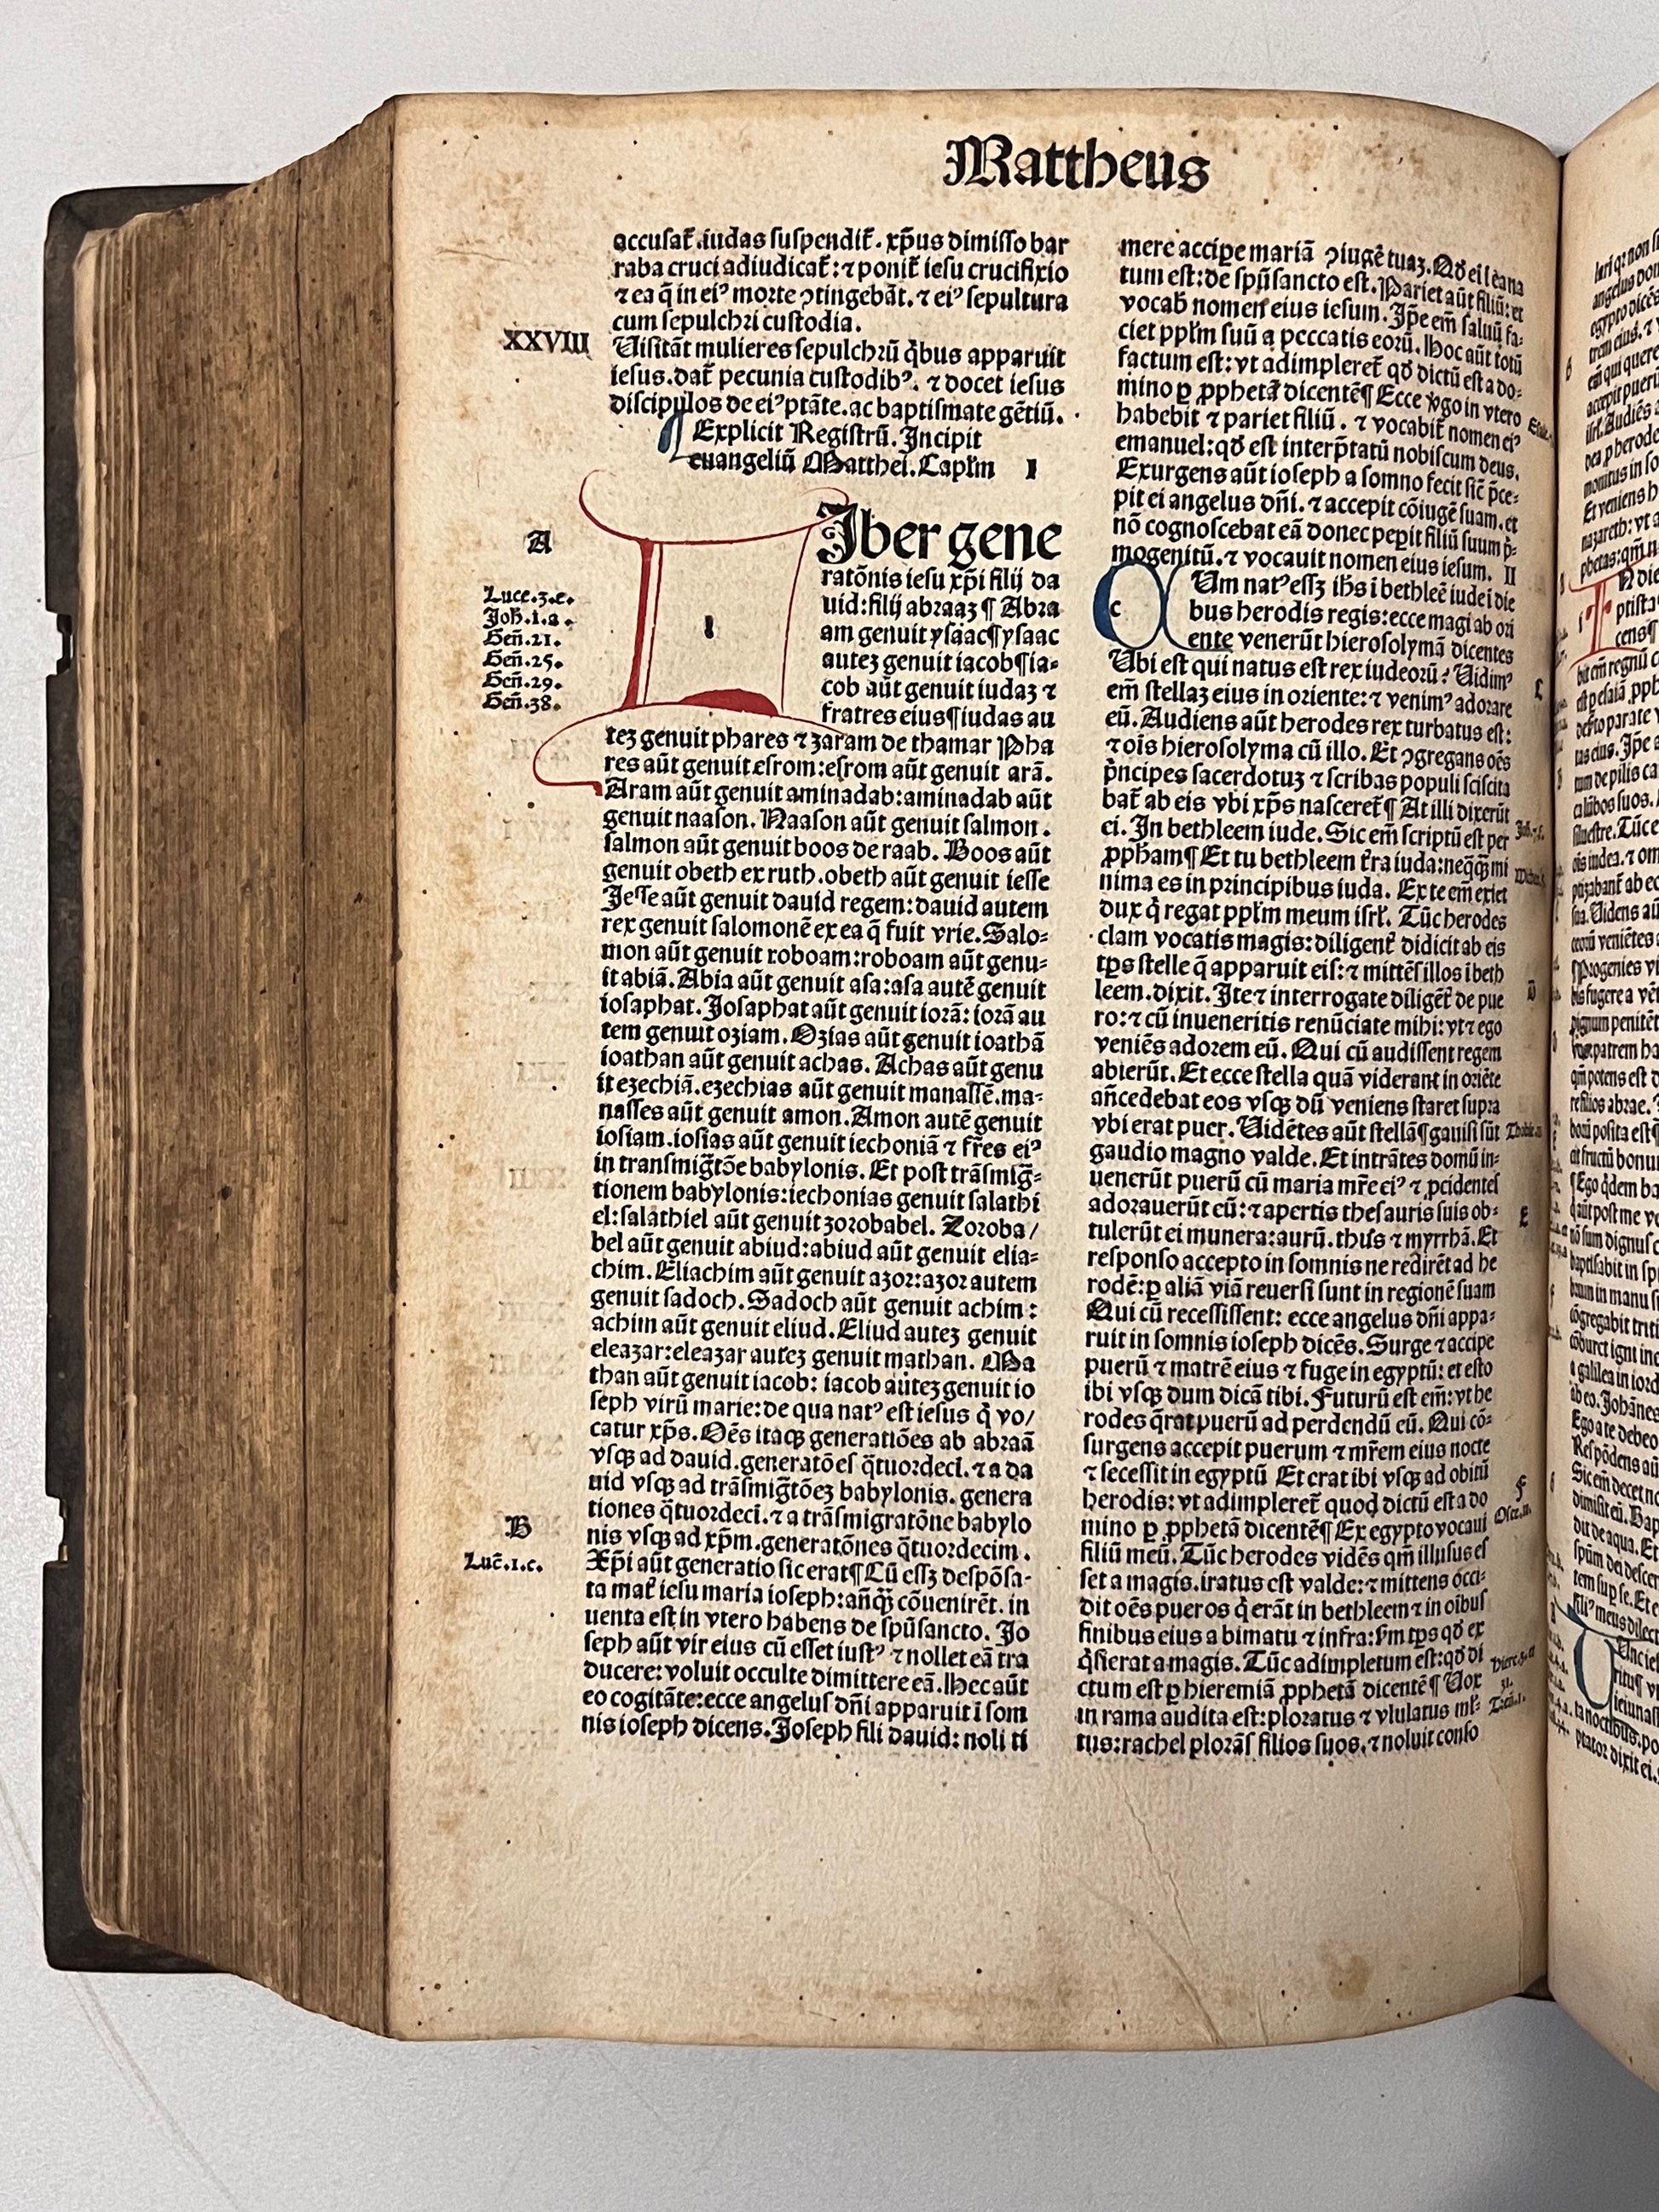 Mattheus
accusat̄.iudas suspendit̄. xp̄us dimisso bar
raba cruci adiudicat̄: ⁊ ponit̄ iesu crucifixio
⁊ ea q̄ in eiꝰ morte ꝯtingebāt. ⁊ eiꝰ sepultura
cum sepulchri custodia.
XXVIII
Uisitāt mulieres sepulchrū q̄bus apparuit
iesus. dat̄ pecunia custodibꝰ. ⁊ docet iesus
discipulos de eiꝰ ptāte. ac baptismate gētiū.
Explicit Registrū. Incipit
euangeliū Matthei. Capl̄m I
A
Luce.3.e.
Joh̄.1.a.
Gen̄.21.
Gen̄.25.
Gen̄.29.
Gen̄.38.
L l
Iber gene
ratōnis iesu xp̄i filij da
uid: filij abraaꝫ ¶ Abra
am genuit ysaac ¶ ysaac
auteꝫ genuit iacob ¶ ia-
cob aūt genuit iudaꝫ ⁊
fratres eius ¶ iudas au
teꝫ genuit phares ⁊ zaram de thamar Pha
res aūt genuit esrom: esrom aūt genuit arā.
Aram aūt genuit aminadab: aminadab aūt
genuit naason. Naason aūt genuit salmon.
salmon aūt genuit boos de raab. Boos aūt
genuit obeth ex ruth. obeth aūt genuit iesse
Jesse aūt genuit dauid regem: dauid autem
rex genuit salomonē ex ea q̄ fuit vrie. Salo-
mon aūt genuit roboam: roboam aūt genu-
it abiā. Abia aūt genuit asa: asa autē genuit
iosaphat. Josaphat aūt genuit iorā: iorā au
tem genuit oziam. Ozias aūt genuit ioathā
ioathan aūt genuit achas. Achas aūt genu
it ezechiā. ezechias aūt genuit manassē. ma-
nasses aūt genuit amon. Amon autē genuit
iosiam. iosias aūt genuit iechoniā ⁊ fr̄es eiꝰ
in transmigr̄tōe babylonis. Et post trāsmigr̄-
tionem babylonis: iechonias genuit salathi
el: salathiel aūt genuit zorobabel. Zoroba/
bel aūt genuit abiud: abiud aūt genuit elia-
chim. Eliachim aūt genuit azor: azor autem
genuit sadoch. Sadoch aūt genuit achim:
achim aūt genuit eliud. Eliud auteꝫ genuit
eleazar: eleazar auteꝫ genuit mathan. Ma
than aūt genuit iacob: iacob auteꝫ genuit io
seph virū marie: de qua natꝰ est iesus q̄ vo/
catur xp̄s. Oēs itaqꝫ generatiōes ab abraā
vsqꝫ ad dauid. generatōes q̄tuordeci. ⁊ a da
uid vsqꝫ ad trāsmigr̄tōeꝫ babylonis. genera
tiones q̄tuordeci. ⁊ a trāsmigratōne babylo
B
nis vsqꝫ ad xp̄m. generatōnes q̄tuordecim.
Luc̄.1.c.
Xp̄i aūt generatio sic erat ¶ Cū essꝫ despōsa-
ta mat̄ iesu maria ioseph: an̄qꝫ cōuenirēt. in
uenta est in vtero habens de spū sancto. Jo
seph aūt vir eius cū esset iustꝰ ⁊ nollet eā tra
ducere: voluit occulte dimittere eā. Hec aūt
eo cogitāte: ecce angelus dn̄i apparuit ī som
nis ioseph dicens. Joseph fili dauid: noli ti
mere accipe mariā ꝯiugē tuaꝫ. Qd̄ ei in ea na
tum est: de spū sancto est. Pariet aūt filiū: et
vocab̄ nomen eius iesum. Ip̄e em̄ saluū fa-
ciet ppl̄m suū a peccatis eorū. Hoc aūt totū
factum est: vt adimpleret̄ qd̄ dictū est a do-
mino ꝑ ꝓphetā dicentē ¶ Ecce v̄go in vtero
habebit ⁊ pariet filiū. ⁊ vocabit̄ nomen eiꝰ
emanuel: qd̄ est interp̄tatū nobiscum deus.
Exurgens aūt ioseph a somno fecit sic̄ p̄ce-
pit ei angelus dn̄i. ⁊ accepit cōiugē suam. et
nō cognoscebat eā donec peꝑit filiū suum p̄-
mogenitū. ⁊ vocauit nomen eius iesum. II
c
Um natꝰ essꝫ ih̄s ī bethleē iude ī die
bus herodis regis: ecce magi ab ori
ente venerūt hierosolymā dicentes
Ubi est qui natus est rex iudeorū? Uidimꝰ
em̄ stellaꝫ eius in oriente: ⁊ venimꝰ adorare
eū. Audiens aūt herodes rex turbatus est:
⁊ oīs hierosolyma cū illo. Et ꝯgregans oēs
p̄ncipes sacerdotuꝫ ⁊ scribas populi sciscita
bat̄ ab eis vbi xp̄s nasceret̄ ¶ At illi dixerūt
ei. In bethleem iude. Sic em̄ scriptū est per
ꝓpham ¶ Et tu bethleem t̄ra iuda: neqq̄ mi
nima es in principibus iuda. Ex te em̄ exiet
dux q̄ regat ppl̄m meum isrl̄. Tūc herodes
clam vocatis magis: diligent̄ didicit ab eis
tp̄s stelle q̄ apparuit eis: ⁊ mittēs illos ī beth
leem. dixit. Ite ⁊ interrogate diligēt̄ de pue
ro: ⁊ cū inueneritis renūciate mihi: vt ⁊ ego
veniēs adorem eū. Qui cū audissent regem
abierūt. Et ecce stella quā viderant in oriēte
an̄cedebat eos vsqꝫ dū veniens staret supra
vbi erat puer. Uidētes aūt stellā ¶ gauisi sūt
gaudio magno valde. Et intrātes domū in-
uenerūt puerū cū maria mr̄e eiꝰ ⁊ ꝓcidentes
adorauerūt eū: ⁊ apertis thesauris suis ob-
tulerūt ei munera: aurū. thus ⁊ myrrhā. Et
responso accepto in somnis ne redirēt ad he
rodē: ꝑ aliā viā reuersi sunt in regionē suam
Qui cū recessissent: ecce angelus dn̄i appa-
ruit in somnis ioseph dicēs. Surge ⁊ accipe
puerū ⁊ matrē eius ⁊ fuge in egyptū: et esto
ibi vsqꝫ dum dicā tibi. Futurū est em̄: vt he
rodes q̄rat puerū ad perdendū eū. Qui cō-
surgens accepit puerum ⁊ mr̄em eius nocte
⁊ secessit in egyptū Et erat ibi vsqꝫ ad obitū
herodis: vt adimpleret̄ quod dictū est a do
mino ꝑ ꝓphetā dicentē ¶ Ex egypto vocaui
filiū meū. Tūc herodes vidēs qm̄ illusus es
set a magis. iratus est valde: ⁊ mittens occi-
dit oēs pueros q̄ erāt in bethleem ⁊ in oībus
finibus eius a bimatu ⁊ infra: s̄m tp̄s qd̄ ex
q̄sierat a magis. Tūc adimpletum est: qd̄ di
ctum est ꝑ hieremiā ꝓphetā dicentē ¶ Uox
in rama audita est: ploratus ⁊ vlulatus ml̄-
tus: rachel plorās filios suos. ⁊ noluit conso
E
F
Osee.11.